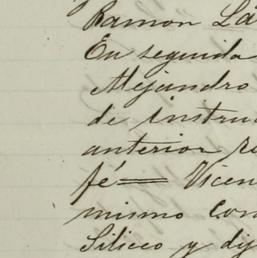 Ramon Lá
En seguida
Alejandro
de instru
anterior re
fé== Vicen
mismo con
Siliceo y dij